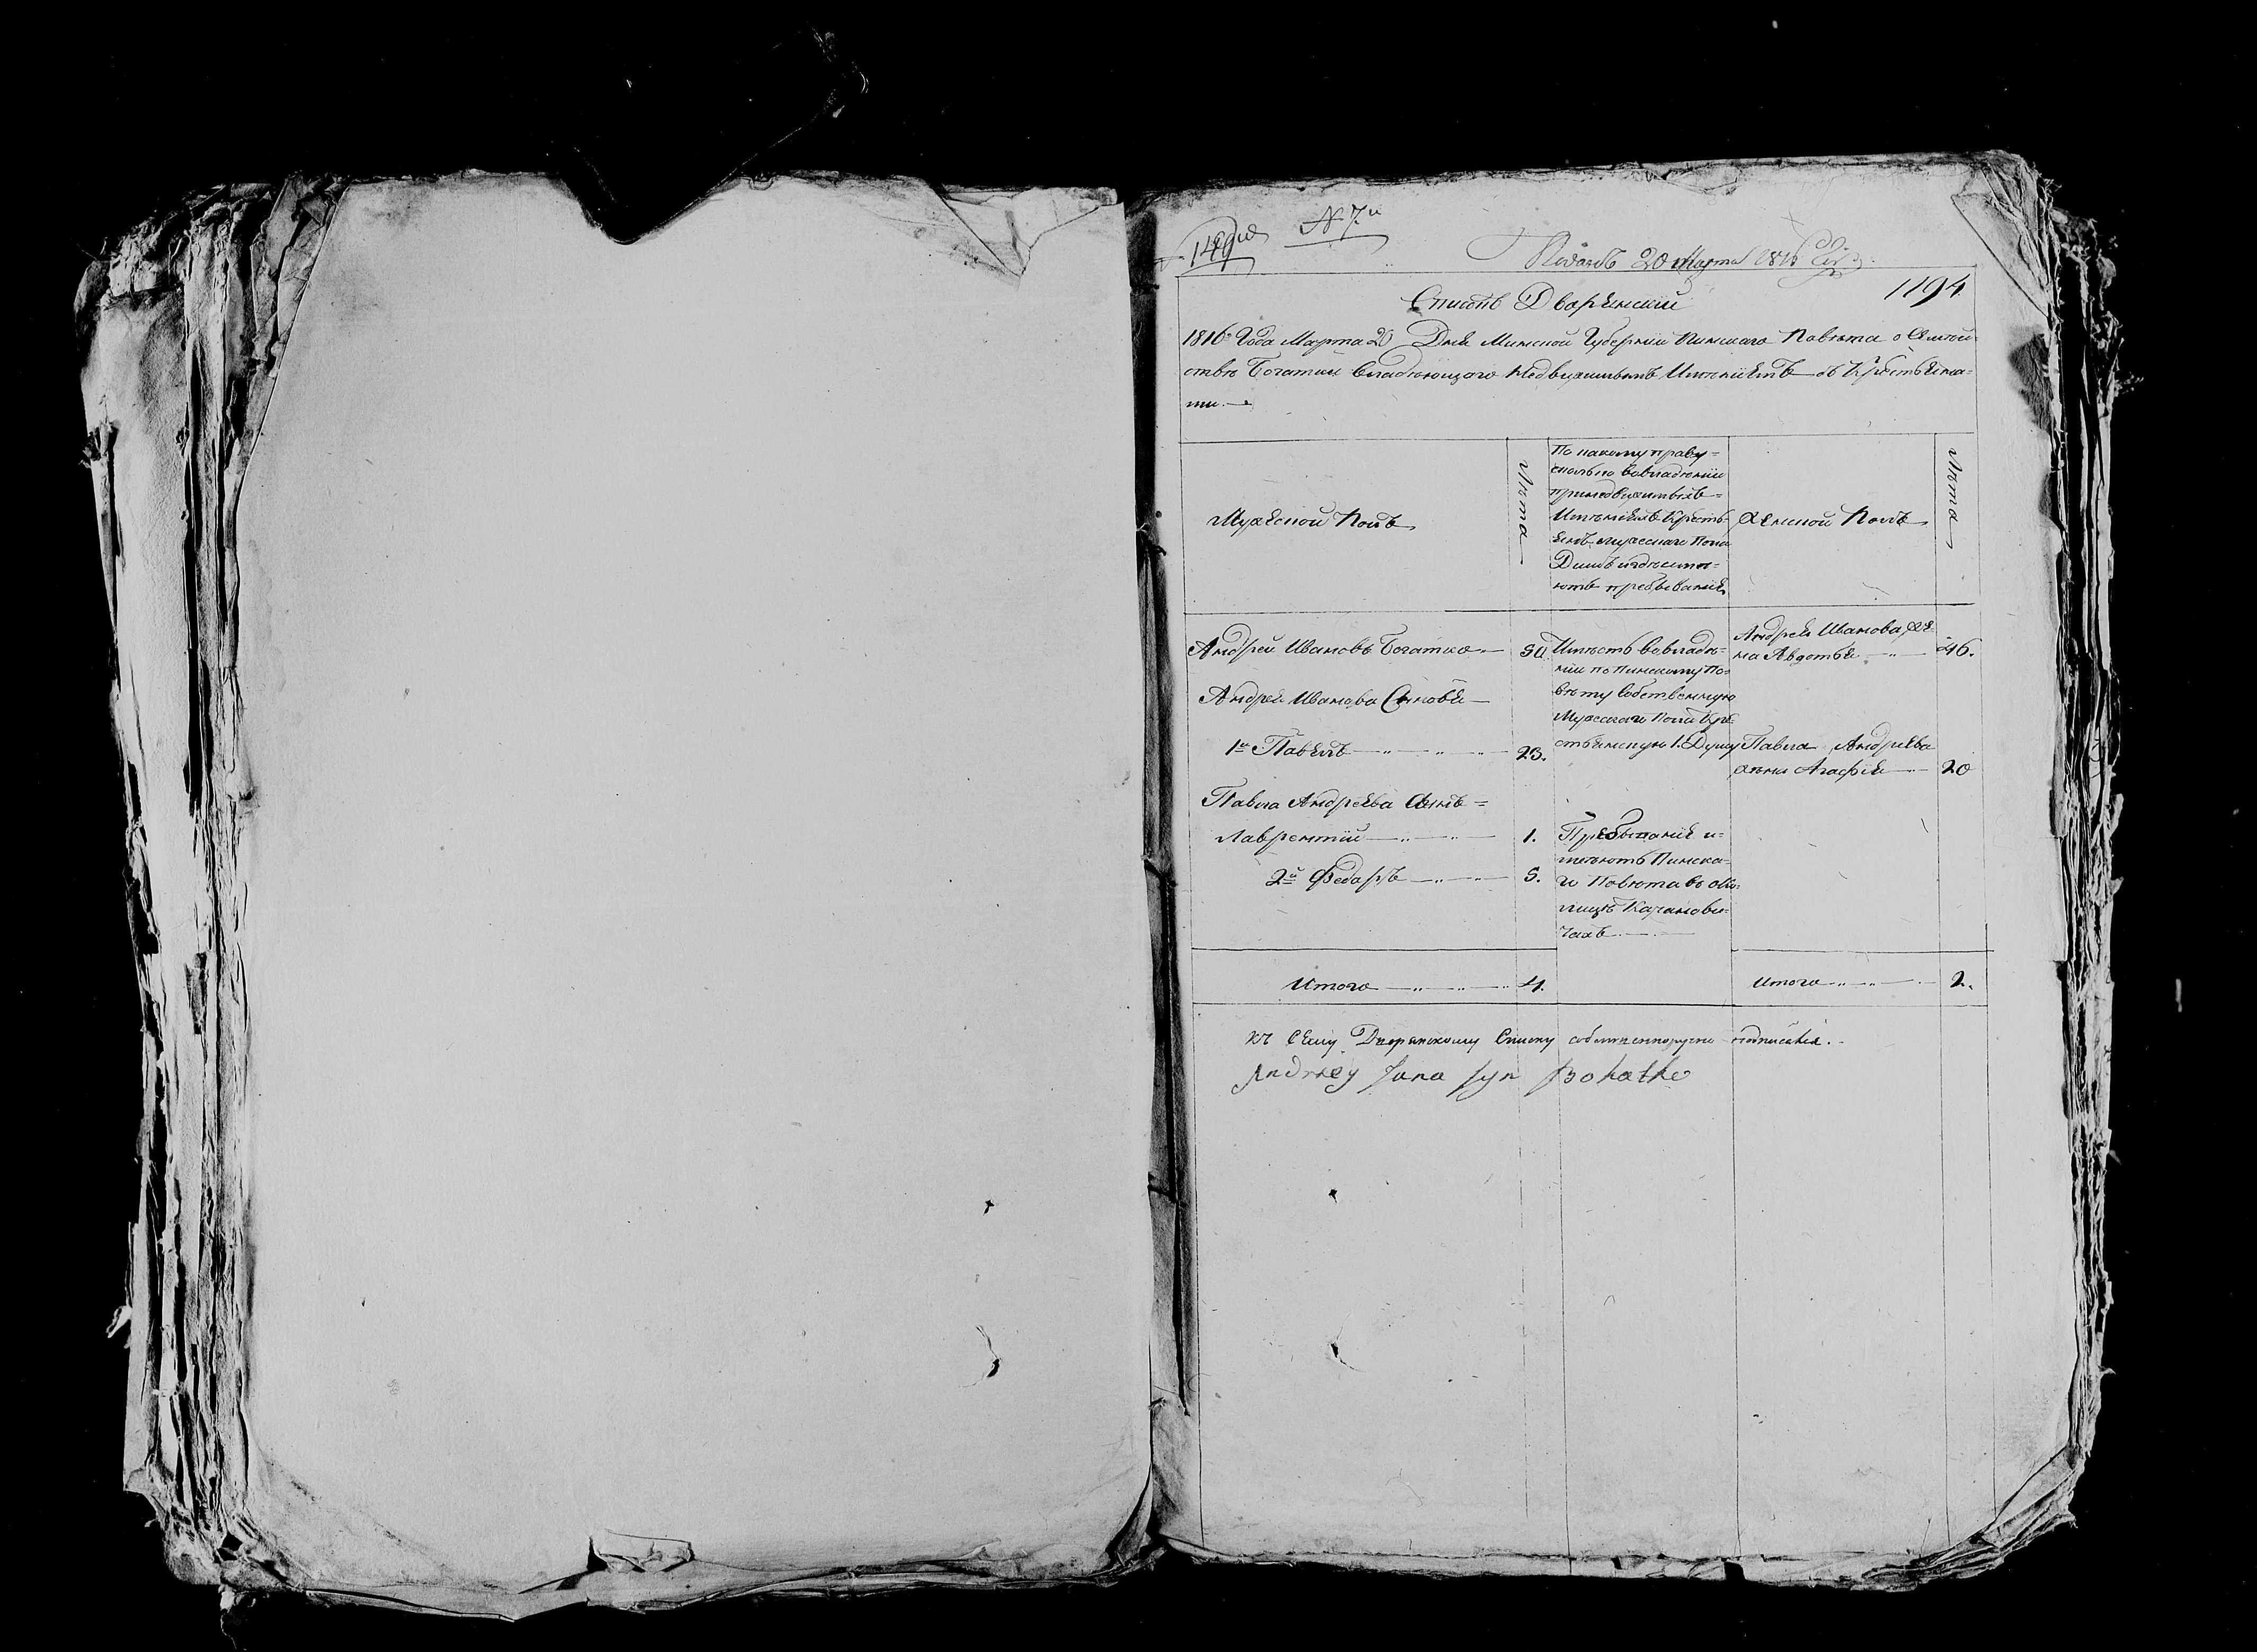 149
№ 7й
Подан 20 Марта 1816
1194
Списокъ Дворянский
1816 Года Марта 20 Дня Минской Губернии Пинскаго Повѣта о Семей-
ствѣ Богатки владѣющаго Недвижимымъ Имениемъ съ Крестьяна-
ми.
Мужеской Полъ
Лѣта
По какому праву
сколько во владѣнии
при недвижимыхъ
Имѣнияхъ Кресть-
янъ мужескаго Пола
Душъ и гдѣ имѣ-
ютъ пребывание
Женской Полъ
Лѣта
Андрей Ивановъ Богатко 50.
Имѣетъ во владѣ-
нии по Пинскому По-
вѣту собственную
Мужескаго Пола Кре-
стьянскую 1. Душу
Андрея Иванова же-
на Авдотья 46.
Андрея Иванова Сыновья
1й Павелъ 23.
Павла Андреева
жена Агафия 20
Павла Андреева Сынъ
Лаврентий 1.
2й Федаръ 5.
Пребывание и-
меютъ Пинска-
го Повета во око-
лицѣ Качанови-
чахъ
Итого 4.
Итого 2.
къ сему Дворянскому Списку собственноручно подписался.
Andrzey Jana syn Bohatko